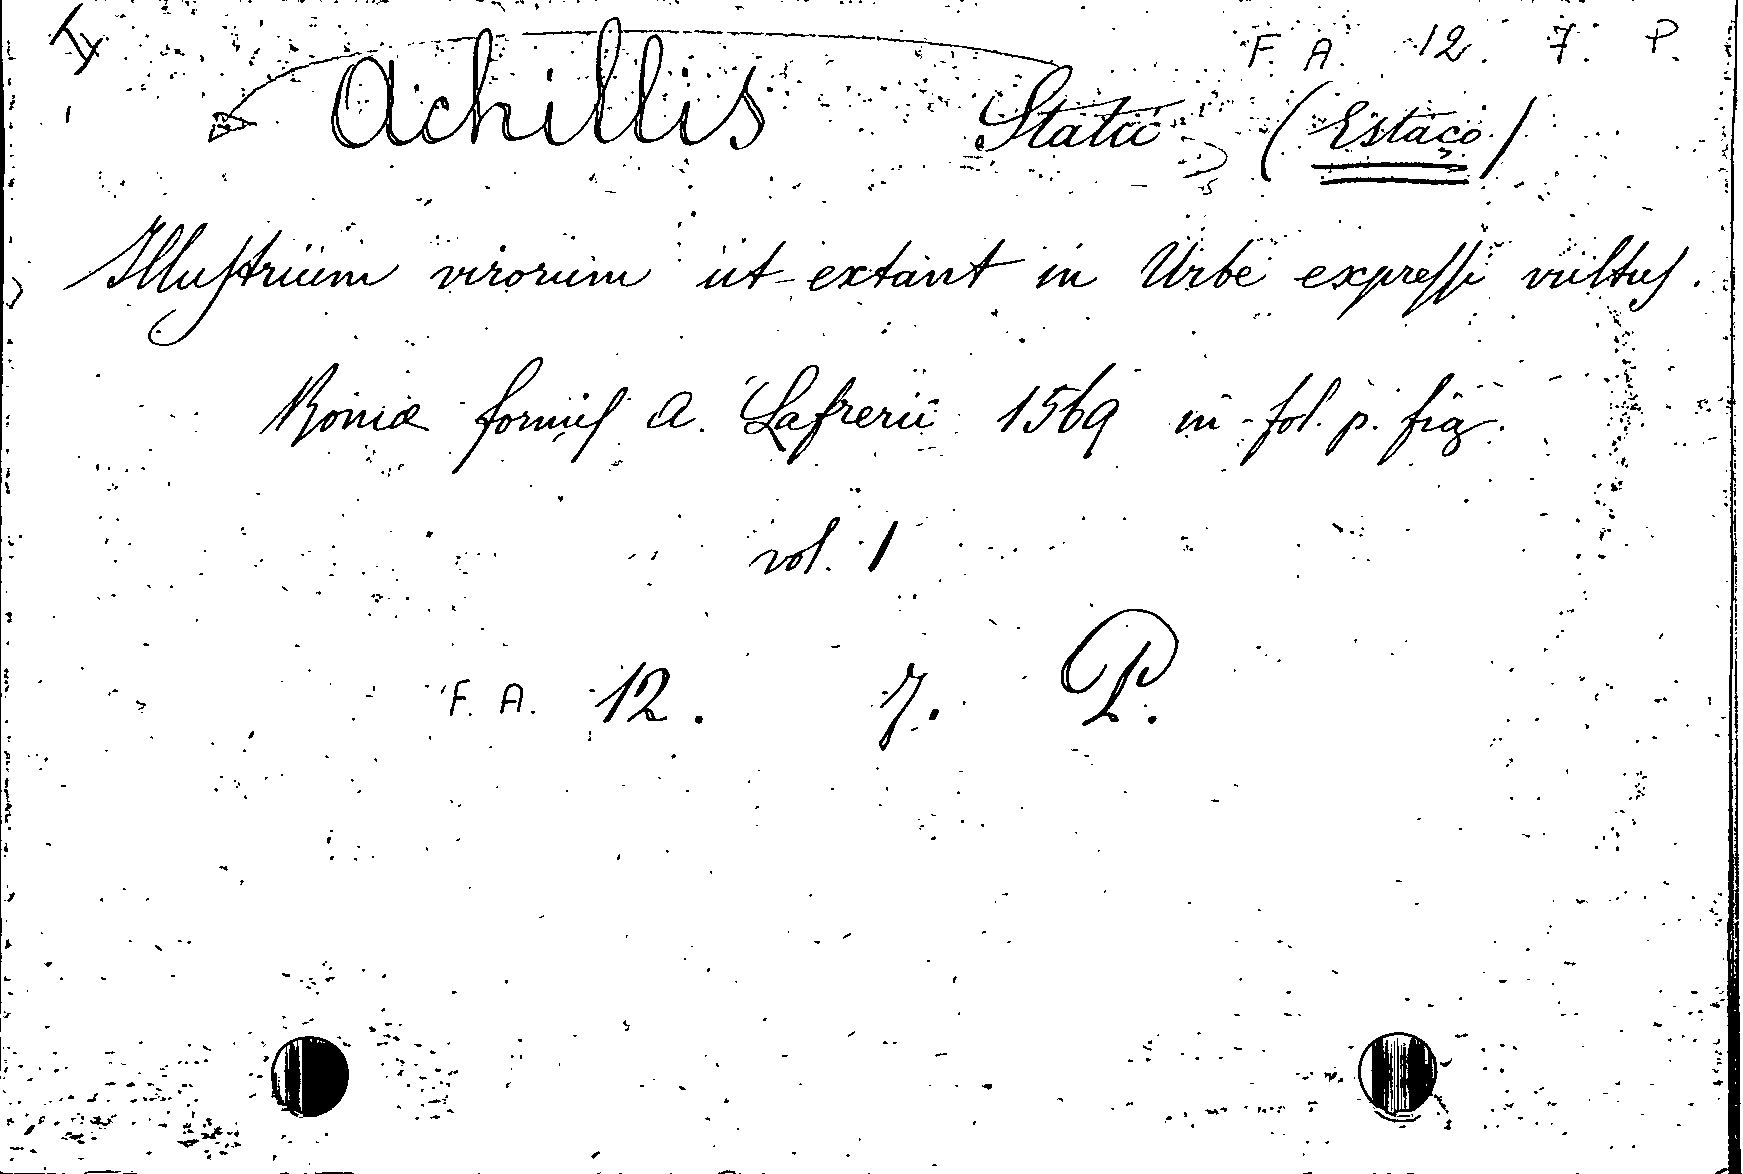 Ty F. A. 12. 7. P.
Achillis Statii (Estaço)
Illustrium virorum ut extant in Urbe expressi vultus.
Romæ formis A. Lafrerii 1569 in fol. p. fig.
vol. 1
F. A. 12. 7. P.